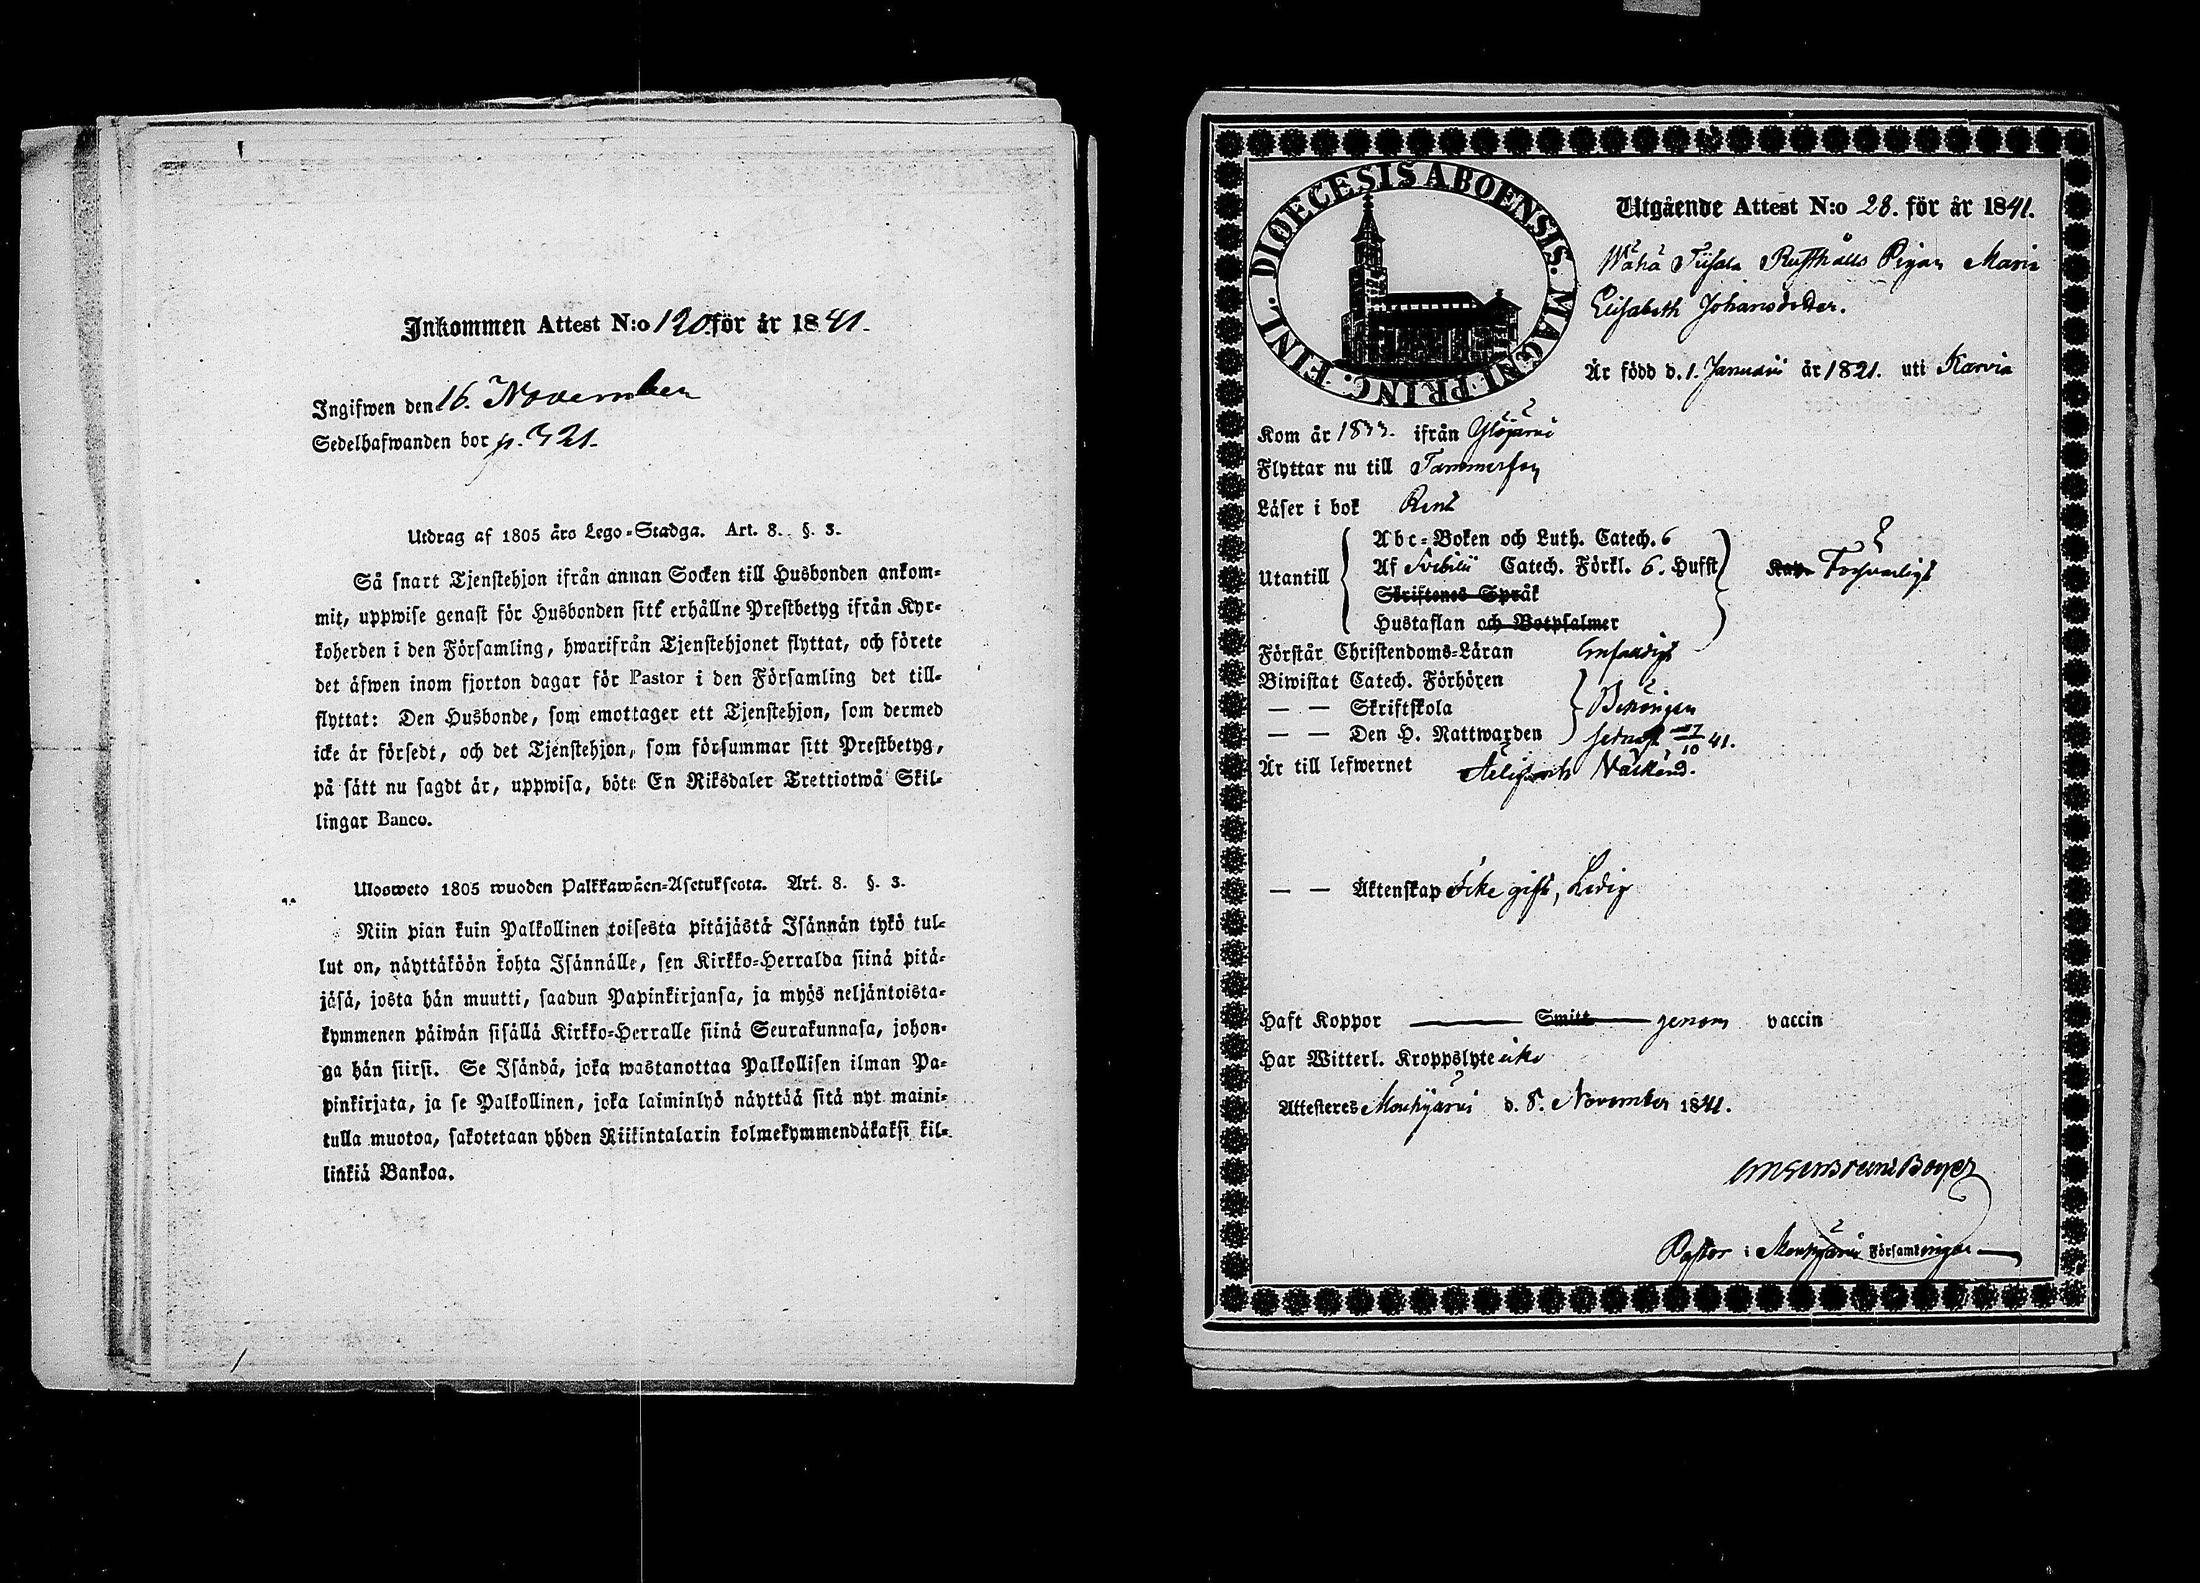 Inkommen Attest N:o 120. för år 1841.
Ingifwen den 16. November
Sedelhafwanden bor p. 321.
Utdrag af 1805 års Lego-Stadga. Art. 8. §. 3.
Så snart Tjenstehjon ifrån annan Socken till Husbonden ankom-
mit, uppwise genast för Husbonden sitt erhållne Prestbetyg ifrån Kyr-
koherden i den Församling, hwarifrån Tjenstehjonet flyttat, och förete
det äfwen inom fjorton dagar för Pastor i den Församling det till-
flyttat: Den Husbonde, som emottager ett Tjenstehjon, som dermed
icke är försedt, och det Tjenstehjon, som försummar sitt Prestbetyg,
på sätt nu sagdt är, uppwisa, böte En Riksdaler Trettiotwå Skil-
lingar Banco.
Ulosweto 1805 wuoden Palkkawäen-Asetuksesta. Art. 8. §. 3.
Niin pian kuin Palkollinen toisesta pitäjästä Isännän tykö tul-
lut on, näyttäköön kohta Isännälle, sen Kirkko-Herralda siinä pitä-
jäsä, josta hän muutti, saadun Papinkirjansa, ja myös neljäntoista-
kymmenen päiwän sisällä Kirkko-Herralle siinä Seurakunnasa, johon-
ga hän siirsi. Se Isändä, joka wastanottaa Palkollisen ilman Pa-
pinkirjata, ja se Palkollinen, joka laiminlyö näyttää sitä nyt maini-
tulla muotoa, sakotetaan yhden Riikintalarin kolmekymmendäkaksi kil-
linkiä Bankoa.
DIOECESIS ABOENSIS. MAGNI PRINC. FINL.
Utgående Attest N:o 28. för år 1841.
Wähä Tiisala Rusthålls Pigan Maria
Elisabeth Johansdotter.
Är född d. 1. Januarii år 1821. uti Karvia
Kom år 1833. ifrån Ylöjärvi
Flyttar nu till Tammerfors
Läser i bok Rent
Utantill
Abc-Boken och Luth. Catech. 6
Af Svebilii Catech. Förkl. 6. Hufst
Skriftenes Språk
Hustaflan och Botpsalmer
Försvarligt
Förstår Christendoms-Läran Enfaldigt
Biwistat Catech. Förhören
— — Skriftskola Behörigen
— — Den H. Nattwarden sednast 17/10 41.
Är till lefwernet Ärlig och Välkänd.
— — Äktenskap Icke gift, Ledig
Haft Koppor Smitt genom vaccin
Har Witterl. Kroppslyte icke
Attesteres Mouhijärvi d. 8. November 1841.
Pastor i Mouhijärvi Församlingar